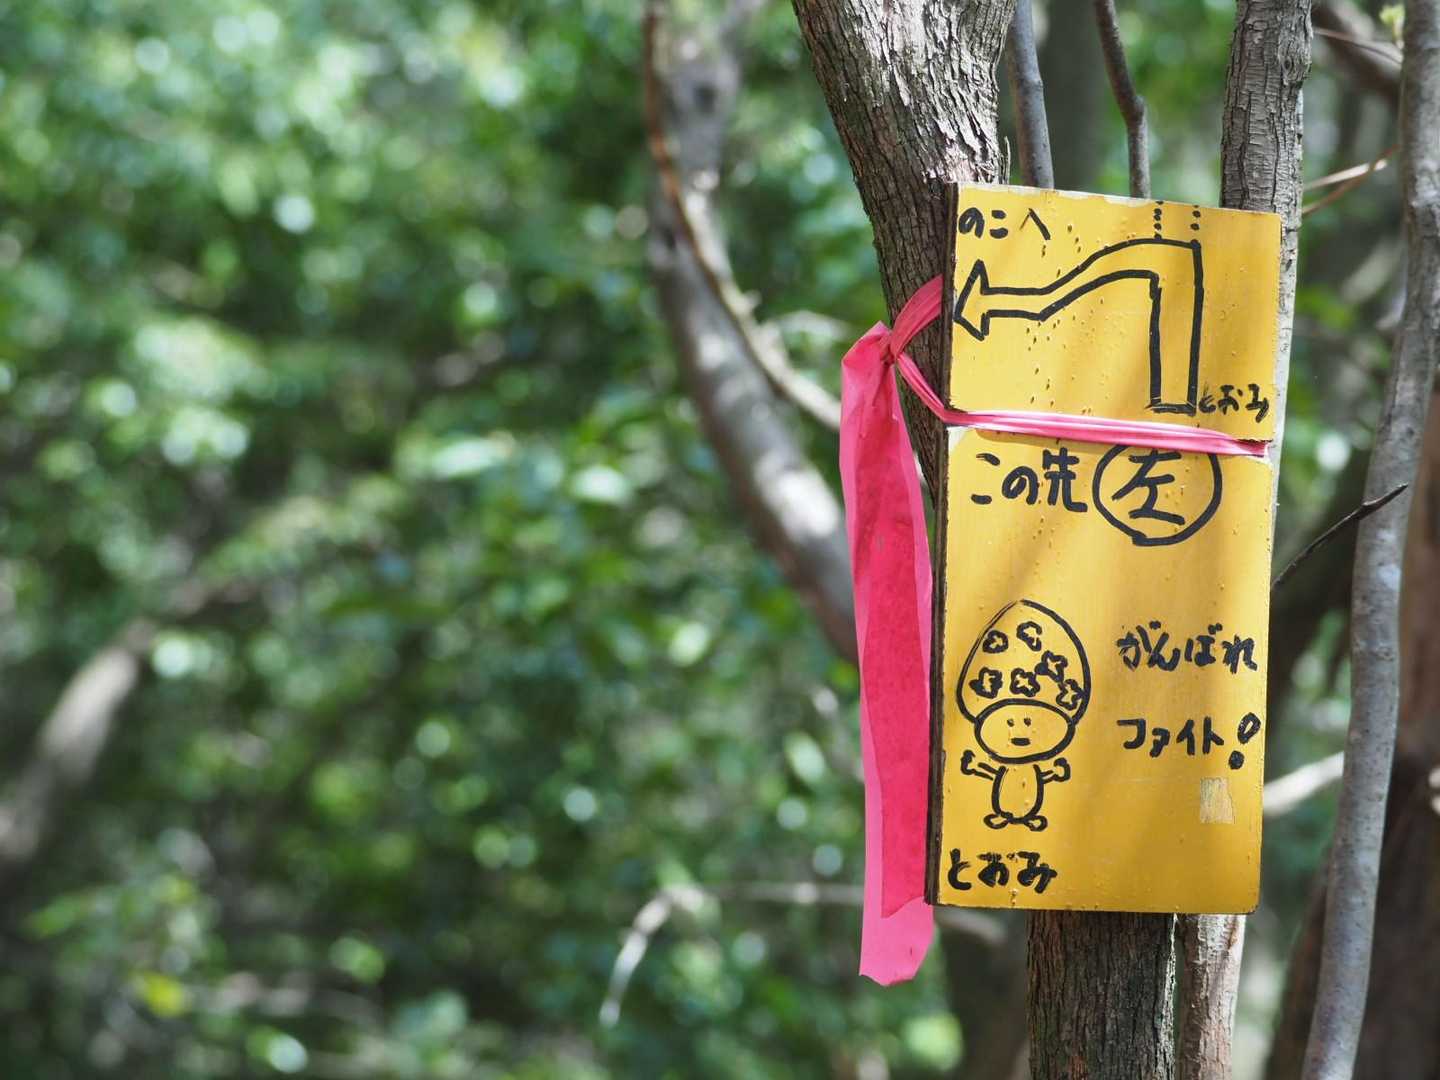 のこへ
とおみ
この先 左
がんばれ
ファイト!
とおみ